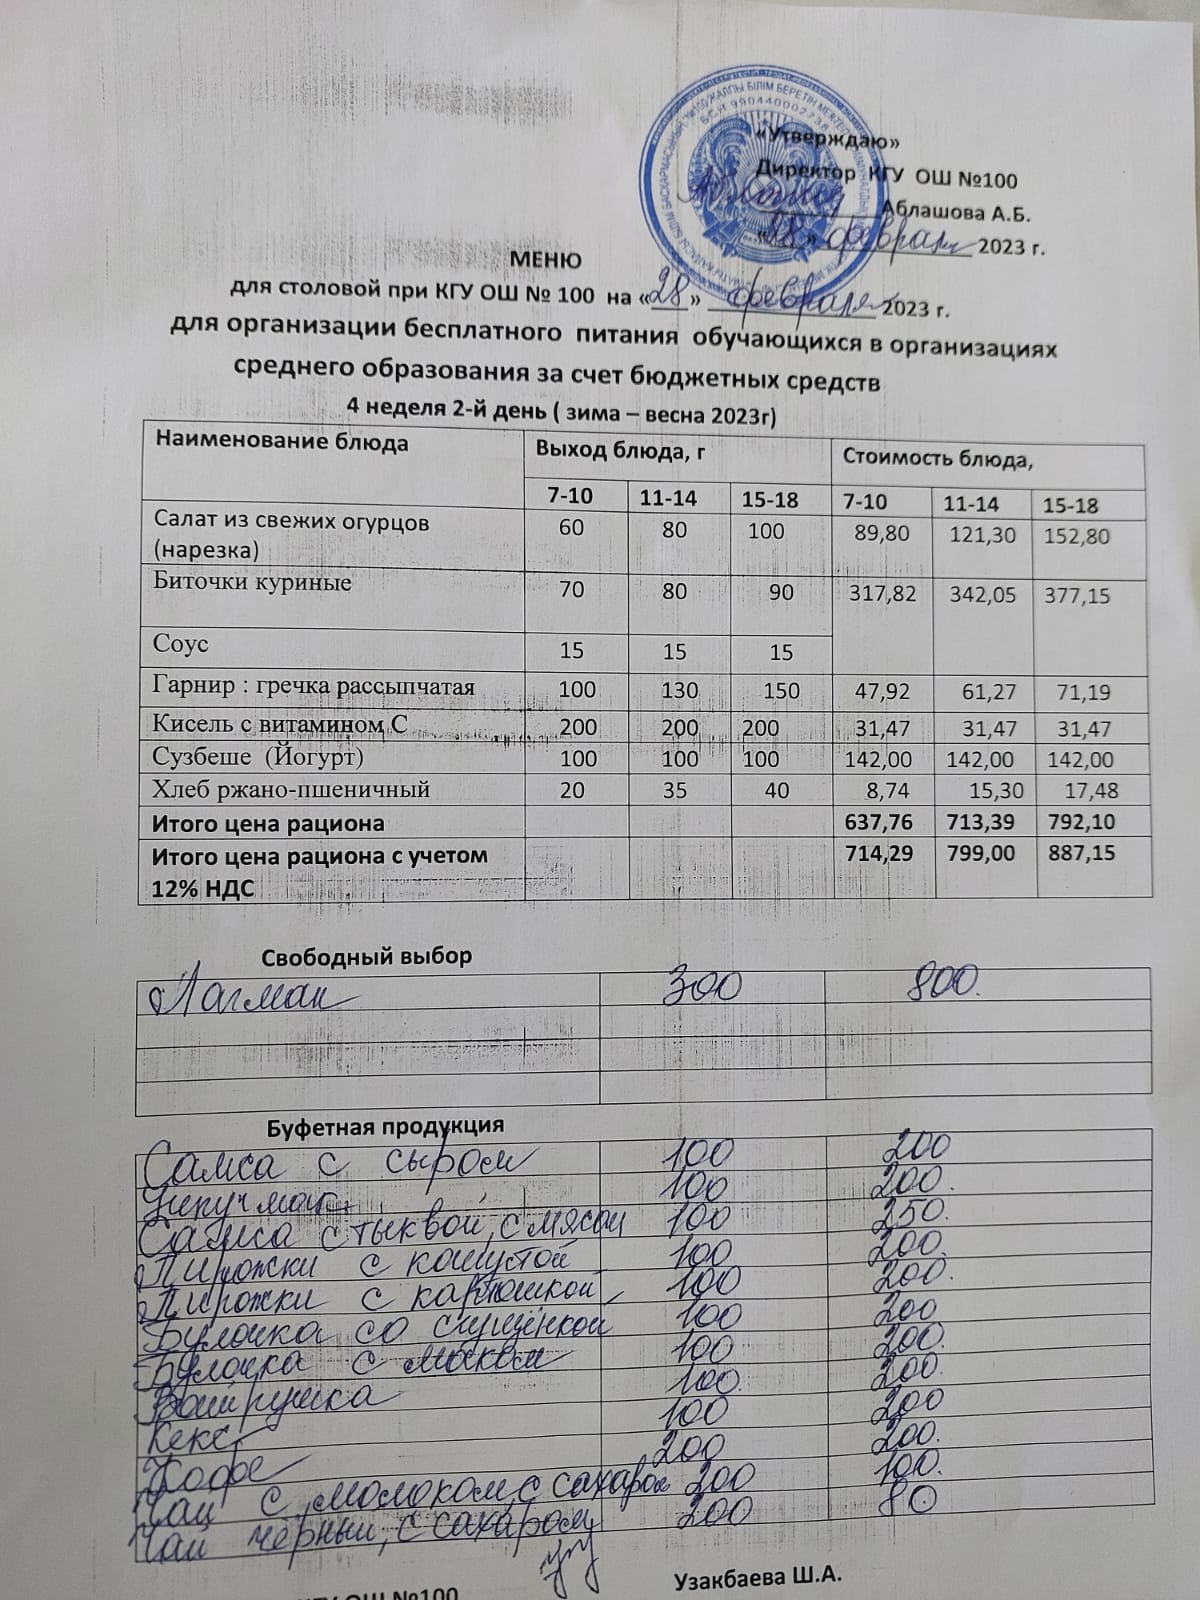 «Утверждаю»
Директор КГУ ОШ №100
Аблашова А.Б.
«28» февраля 2023 г.
МЕНЮ
для столовой при КГУ ОШ № 100 на «28» февраля 2023 г.
для организации бесплатного питания обучающихся в организациях
среднего образования за счет бюджетных средств
4 неделя 2-й день ( зима – весна 2023г)
Наименование блюда Выход блюда, г Стоимость блюда,
7-10 11-14 15-18 7-10 11-14 15-18
Салат из свежих огурцов 60 80 100 89,80 121,30 152,80
(нарезка)
Биточки куриные 70 80 90 317,82 342,05 377,15
Соус 15 15 15
Гарнир : гречка рассыпчатая 100 130 150 47,92 61,27 71,19
Кисель с витамином С 200 200 200 31,47 31,47 31,47
Сузбеше (Йогурт) 100 100 100 142,00 142,00 142,00
Хлеб ржано-пшеничный 20 35 40 8,74 15,30 17,48
Итого цена рациона 637,76 713,39 792,10
Итого цена рациона с учетом 714,29 799,00 887,15
12% НДС
Свободный выбор
Лагман 300 800.
Буфетная продукция
Самса с сыром 100 200
Учпучмак 100 200.
Самса с тыквой, с мясом 100 250.
Пирожки с капустой 100 200.
Пирожки с картошкой 100 200.
Булочка со сгущёнкой 100 200
Булочка с маком 100 200.
Ватрушка 100. 200.
Кекс 100 200
Кофе 200 200.
Чай с молоком, с сахаром 200 100.
Чай чёрный, с сахаром 200 80
КГУ ОШ №100 Узакбаева Ш.А.